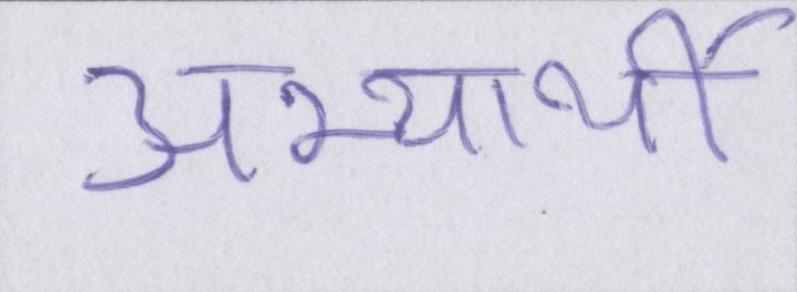 अभ्यार्थी